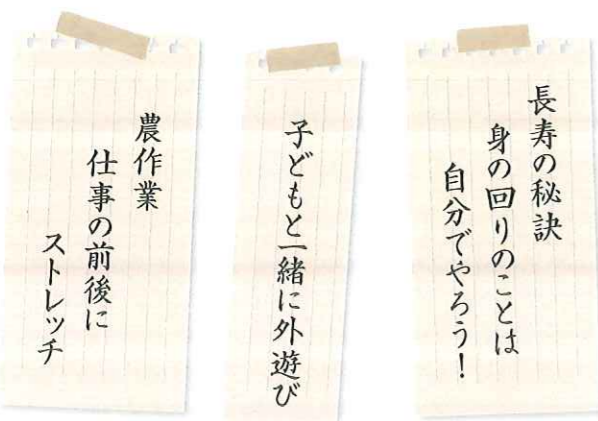 長寿の秘訣
身の回りのことは
自分でやろう！
子どもと一緒に外遊び
農作業
仕事の前後に
ストレッチ